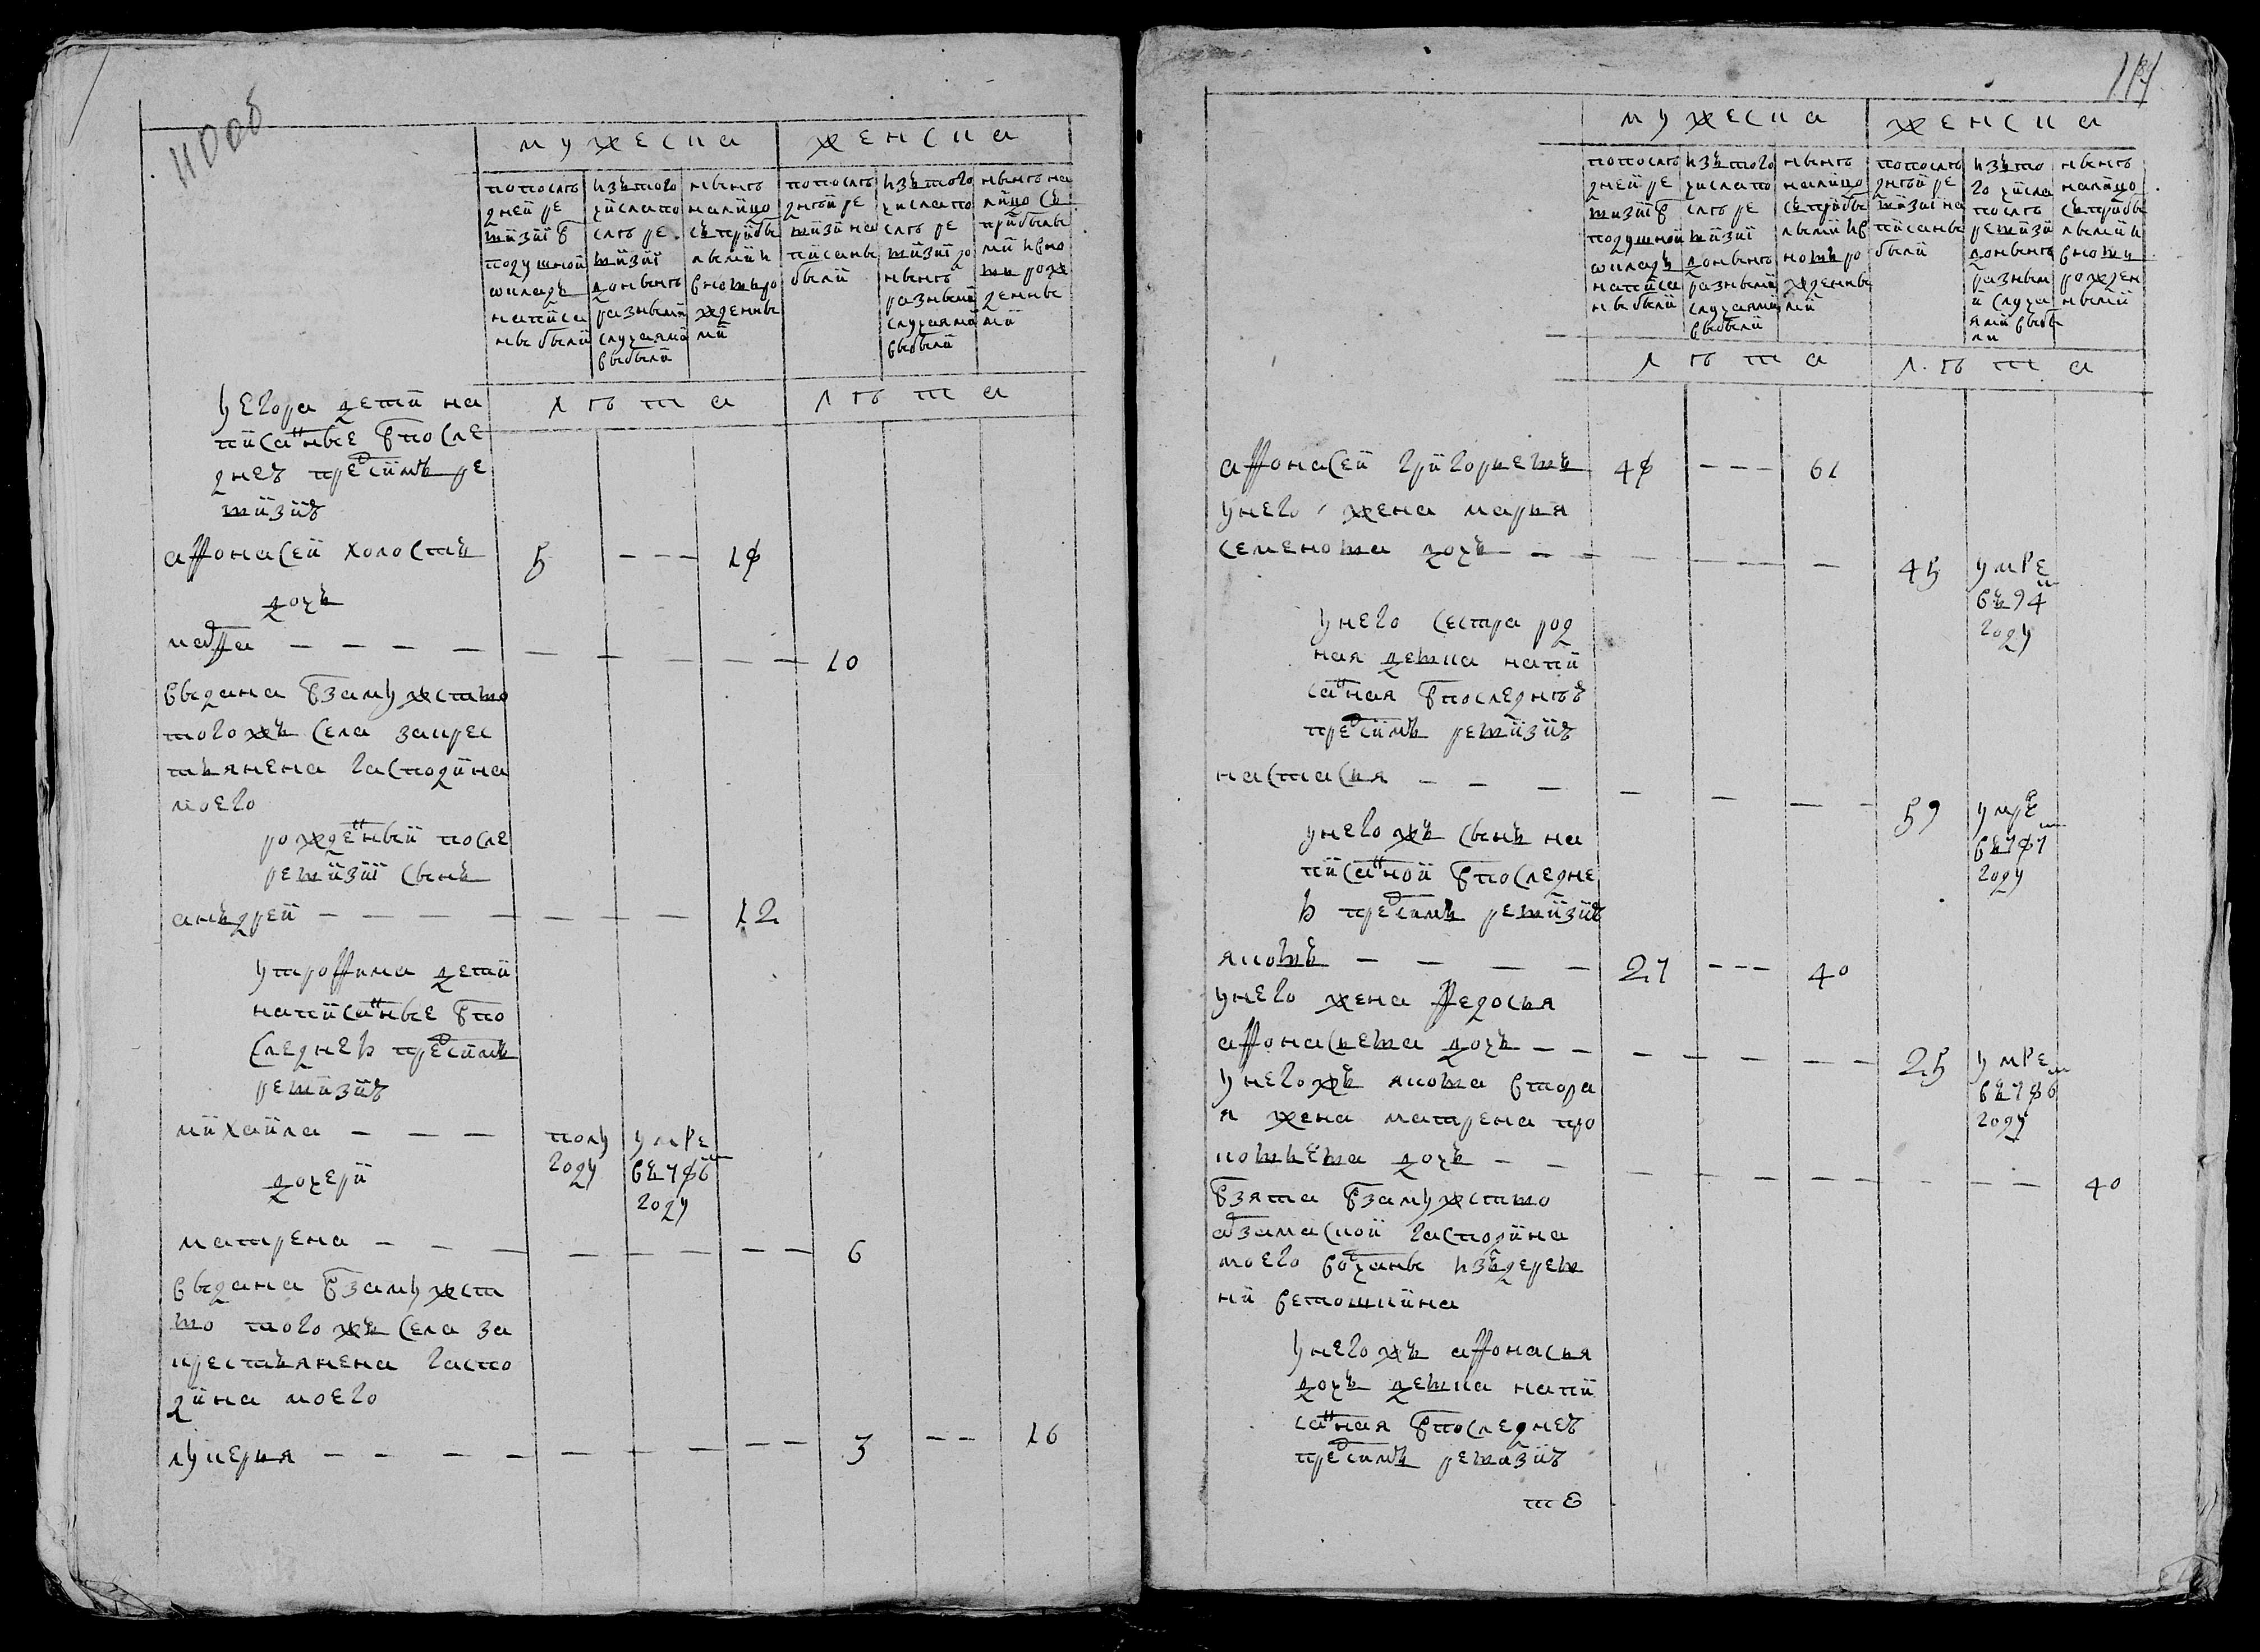 110об
мужеска женска
попослѣ
дней ре
визиї в
подушной
окладъ
написа
ны были
изътого
числапо
слѣ ре
визиї
донынѣ
разными
случаями
выбыли
нынѣ
налицо
съприбы
лыми и
вновьро
жденны
ми
попослѣ
днѣй ре
визи на
писаны
были
изътого
числапо
слѣ ре
визиї до
нынѣ
разными
случаями
выбыли
нынѣ на
лицо съ
прибылы
ми ивно
вь рож
денны
ми
лѣта лѣта
уегора дети на
писанные впосле
днеѣ предсимъ ре
визиѣ
афонасей холостъ 5 --- 18
дочь
мавра — — — — — — — — — 10
выдана взамужство
тогожъ села закрес
тьянена гасподина
моего
рожденный после
ревизиї сынъ
анъдрей — — — — — — — — 12
утрофима дети
написанные впо
следнеѣ предсимъ
ревизиѣ
михайла — — — полу
году умре
въ786м
году
дочери
матрена — — — — — — — — 6
выдана взамужст
во тогожъ села за
крестьянена гаспо
дина моего
лукерья — — — — — — — — — 3 — — 16
111
мужеска женска
попослѣ
дней ре
визиї в
подушной
окладъ
написа
ны были
изътого
числапо
слѣ ре
визиї
донынѣ
разными
случаями
выбыли
нынѣ
налицо
съприбы
лыми ив
новь ро
жденны
ми
попослѣ
днѣй ре
визиї на
писаны
были
изъто
го числа
послѣ
ревизи
донынѣ
разным
и случа
ями выбы
ли
нынѣ
налицо
съприбы
лыми и
вновь
рожден
ными
лѣта лѣта
афонасей григорьевъ 48 --- 61
унего жена марья
семенова дочь — — — — — 45 умре
въ94м
году
унего сестра род
ная девка напи
санная впоследнѣѣ
предсимъ ревизиѣ
настасья — — — — — — — 59 умре
въ787м
году
унегожъ сынъ на
писанной впоследне
ѣ предсимъ ревизиѣ
яковъ — — — — 27 --- 40
унего жена федосья
афонасьева дочь — — — — — — — 25 умре
въ786м
году
унегожъ якова втора
я жена матрена про
кофьева дочь — — — — — — — — — 40
взята взамужство
арзамаской гасподина
моего вотчаны изъдерев
ни ветошкина
унегожъ афонасья
дочь девка напи
санная впоследнеѣ
предсимъ ревизиѣ
те